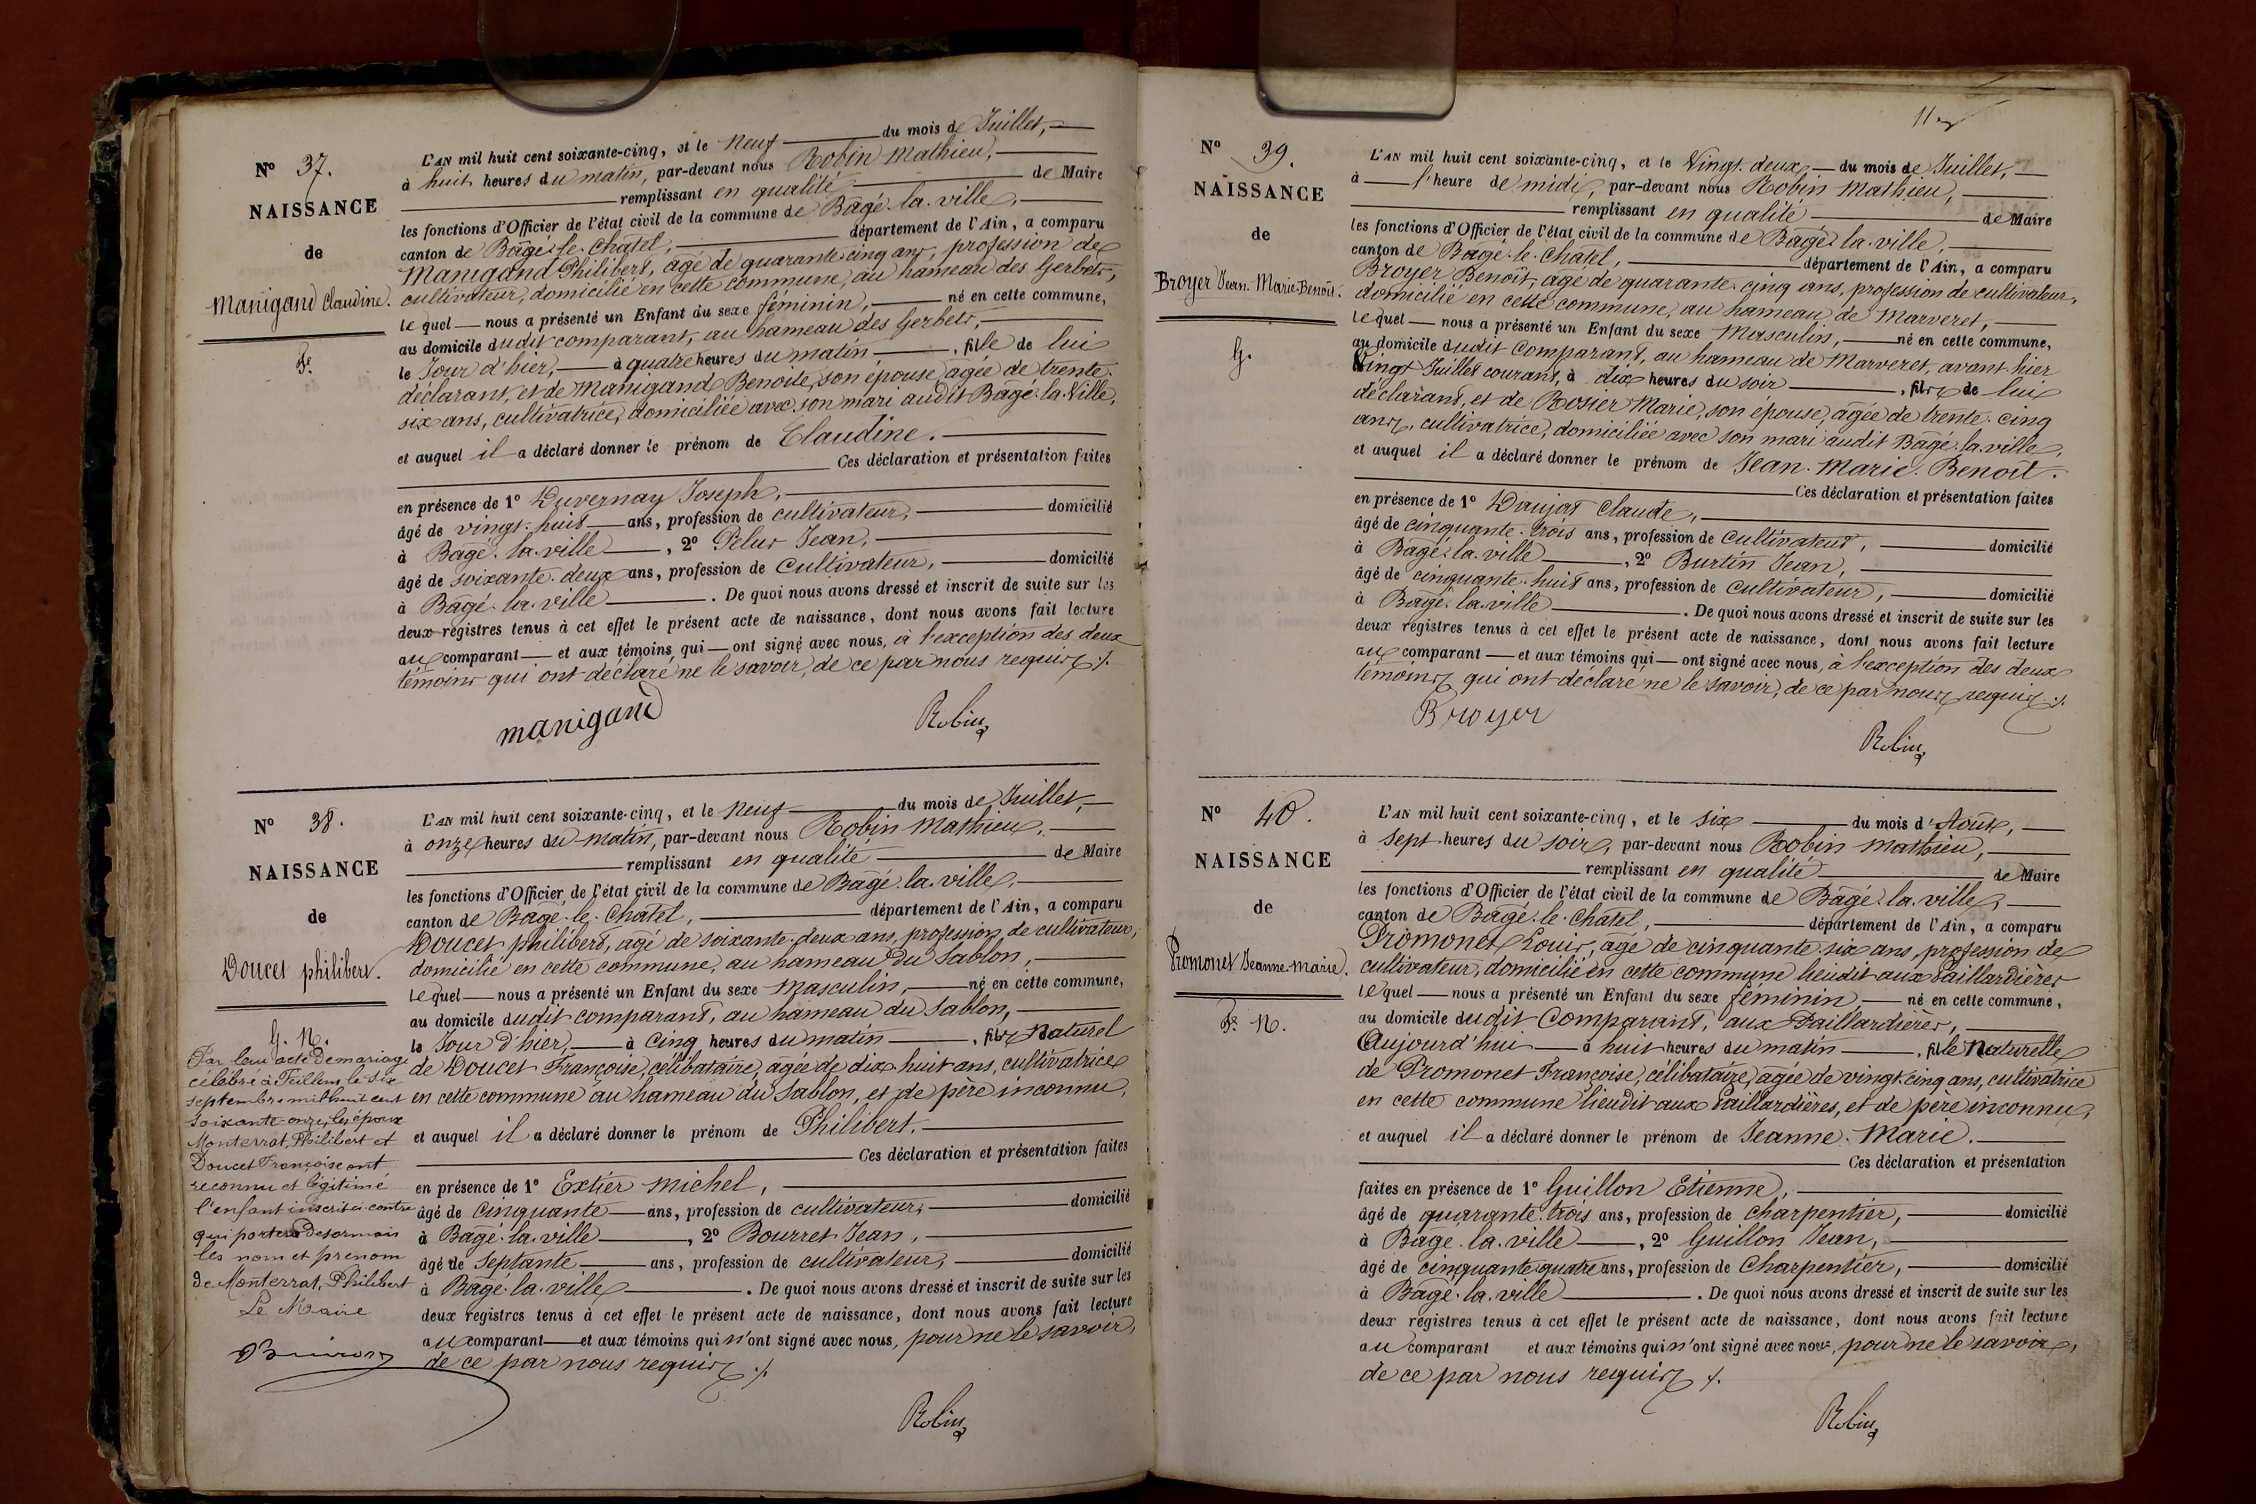 N° 37.
NAISSANCE
de
Manigand Claudine.
F.
L'AN mil huit cent soixante-cinq, et le Neuf du mois de Juillet,
à huit heures du matin, par-devant nous Robin Mathieu,
remplissant en qualité de Maire
les fonctions d'Officier de l'état civil de la commune de Bâgé-la-ville,
canton de Bâgé-le-Châtel, département de l'Ain, a comparu
Manigand Philibert, âgé de quarante cinq ans, profession de
cultivateur, domicilié en cette commune, au hameau des Gerbets,
lequel nous a présenté un Enfant du sexe féminin, né en cette commune,
au domicile dudit comparant, au hameau des Gerbets,
le Jour d'hier, à quatre heures du matin, fille de lui
déclarant, et de Manigand Benoite, son épouse, âgée de trente-
six ans, cultivatrice, domiciliée avec son mari audit Bâgé-la-Ville,
et auquel il a déclaré donner le prénom de Claudine.
Ces déclaration et présentation faites
en présence de 1° Duvernay Joseph,
âgé de vingt-huit ans, profession de cultivateur, domicilié
à Bâgé-la-ville, 2° Pelus Jean,
âgé de soixante-deux ans, profession de Cultivateur, domicilié
à Bâgé-la-ville. De quoi nous avons dressé et inscrit de suite sur les
deux registres tenus à cet effet le présent acte de naissance, dont nous avons fait lecture
au comparant et aux témoins qui ont signé avec nous, à l'exception des deux
témoins qui ont déclaré ne le savoir, de ce par nous requis ./.
manigand
Robin
N° 38.
NAISSANCE
de
Doucet philibert.
G. N.
Par leur acte de mariage
célébré à Feillens le six
septembre mil huit cent
soixante-onze, les époux
Monterrat, Philibert et
Doucet Françoise ont
reconnu et légitimé
l'enfant inscrit ci-contre
qui portera désormais
les nom et prénom
de Monterrat, Philibert
Le Maire
L'AN mil huit cent soixante-cinq, et le Neuf du mois de Juillet,
à onze heures du matin, par-devant nous Robin Mathieu,
remplissant en qualité de Maire
les fonctions d'Officier de l'état civil de la commune de Bâgé-la-ville,
canton de Bâgé-le-Châtel, département de l'Ain, a comparu
Doucet philibert, âgé de soixante-deux ans, profession de cultivateur,
domicilié en cette commune, au hameau du Sablon,
lequel nous a présenté un Enfant du sexe Masculin, né en cette commune,
au domicile dudit comparant, au hameau du Sablon,
le Jour d'hier, à Cinq heures du matin, fils Naturel
de Doucet Françoise, célibataire, âgée de dix-huit ans, cultivatrice
en cette commune au hameau du Sablon, et de père inconnu,
et auquel il a déclaré donner le prénom de Philibert.
Ces déclaration et présentation faites
en présence de 1° Extier Michel,
âgé de Cinquante ans, profession de cultivateur, domicilié
à Bâgé-la-ville, 2° Bourret Jean,
âgé de septante ans, profession de cultivateur, domicilié
à Bâgé-la-ville. De quoi nous avons dressé et inscrit de suite sur les
deux registres tenus à cet effet le présent acte de naissance, dont nous avons fait lecture
au comparant et aux témoins qui n'ont signé avec nous, pour ne le savoir,
de ce par nous requis ./.
Robin
11
N° 39.
NAISSANCE
de
Broyer Jean-Marie-Benoît.
G.
L'AN mil huit cent soixante-cinq, et le Vingt-deux du mois de Juillet,
à l'heure de midi, par-devant nous Robin Mathieu,
remplissant en qualité de Maire
les fonctions d'Officier de l'état civil de la commune de Bâgé-la-ville,
canton de Bâgé-le-Châtel, département de l'Ain, a comparu
Broyer Benoît, âgé de quarante-cinq ans, profession de cultivateur,
domicilié en cette commune, au hameau de Marveret,
lequel nous a présenté un Enfant du sexe Masculin, né en cette commune,
au domicile dudit Comparant, au hameau de Marveret, avant hier
Vingt Juillet courant, à dix heures du soir, fils de lui
déclarant, et de Rosier Marie, son épouse, âgée de trente-cinq
ans, cultivatrice, domiciliée avec son mari audit Bâgé-la-ville,
et auquel il a déclaré donner le prénom de Jean-Marie-Benoît.
Ces déclaration et présentation faites
en présence de 1° Daujat Claude,
âgé de cinquante-trois ans, profession de Cultivateur, domicilié
à Bâgé-la-ville, 2° Burtin Jean,
âgé de cinquante-huit ans, profession de cultivateur, domicilié
à Bâgé-la-ville. De quoi nous avons dressé et inscrit de suite sur les
deux registres tenus à cet effet le présent acte de naissance, dont nous avons fait lecture
au comparant et aux témoins qui ont signé avec nous, à l'exception des deux
témoins qui ont déclaré ne le savoir, de ce par nous requis ./.
Broyer
Robin
N° 40.
NAISSANCE
de
Promonet Jeanne-Marie.
F. N.
L'AN mil huit cent soixante-cinq, et le six du mois d'Août,
à sept heures du soir, par-devant nous Robin Mathieu,
remplissant en qualité de Maire
les fonctions d'Officier de l'état civil de la commune de Bâgé-la-ville,
canton de Bâgé-le-Châtel, département de l'Ain, a comparu
Promonet Louis, âgé de cinquante-six ans, profession de
cultivateur, domicilié en cette commune lieudit aux Paillardières
lequel nous a présenté un Enfant du sexe féminin, né en cette commune,
au domicile dudit Comparant, aux Paillardières,
Aujourd'hui à huit heures du matin, fille Naturelle
de Promonet Françoise, célibataire, âgée de vingt-cinq ans, cultivatrice
en cette commune lieudit aux Paillardières, et de père inconnu,
et auquel il a déclaré donner le prénom de Jeanne-Marie.
Ces déclaration et présentation
faites en présence de 1° Guillon Etienne,
âgé de quarante-trois ans, profession de charpentier, domicilié
à Bâgé-la-ville, 2° Guillon Jean,
âgé de cinquante-quatre ans, profession de Charpentier, domicilié
à Bâgé-la-ville. De quoi nous avons dressé et inscrit de suite sur les
deux registres tenus à cet effet le présent acte de naissance, dont nous avons fait lecture
au comparant et aux témoins qui n'ont signé avec nous, pour ne le savoir,
de ce par nous requis ./.
Robin